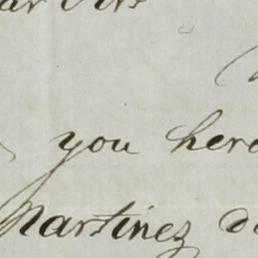 ar Sir
you here
Martinez d